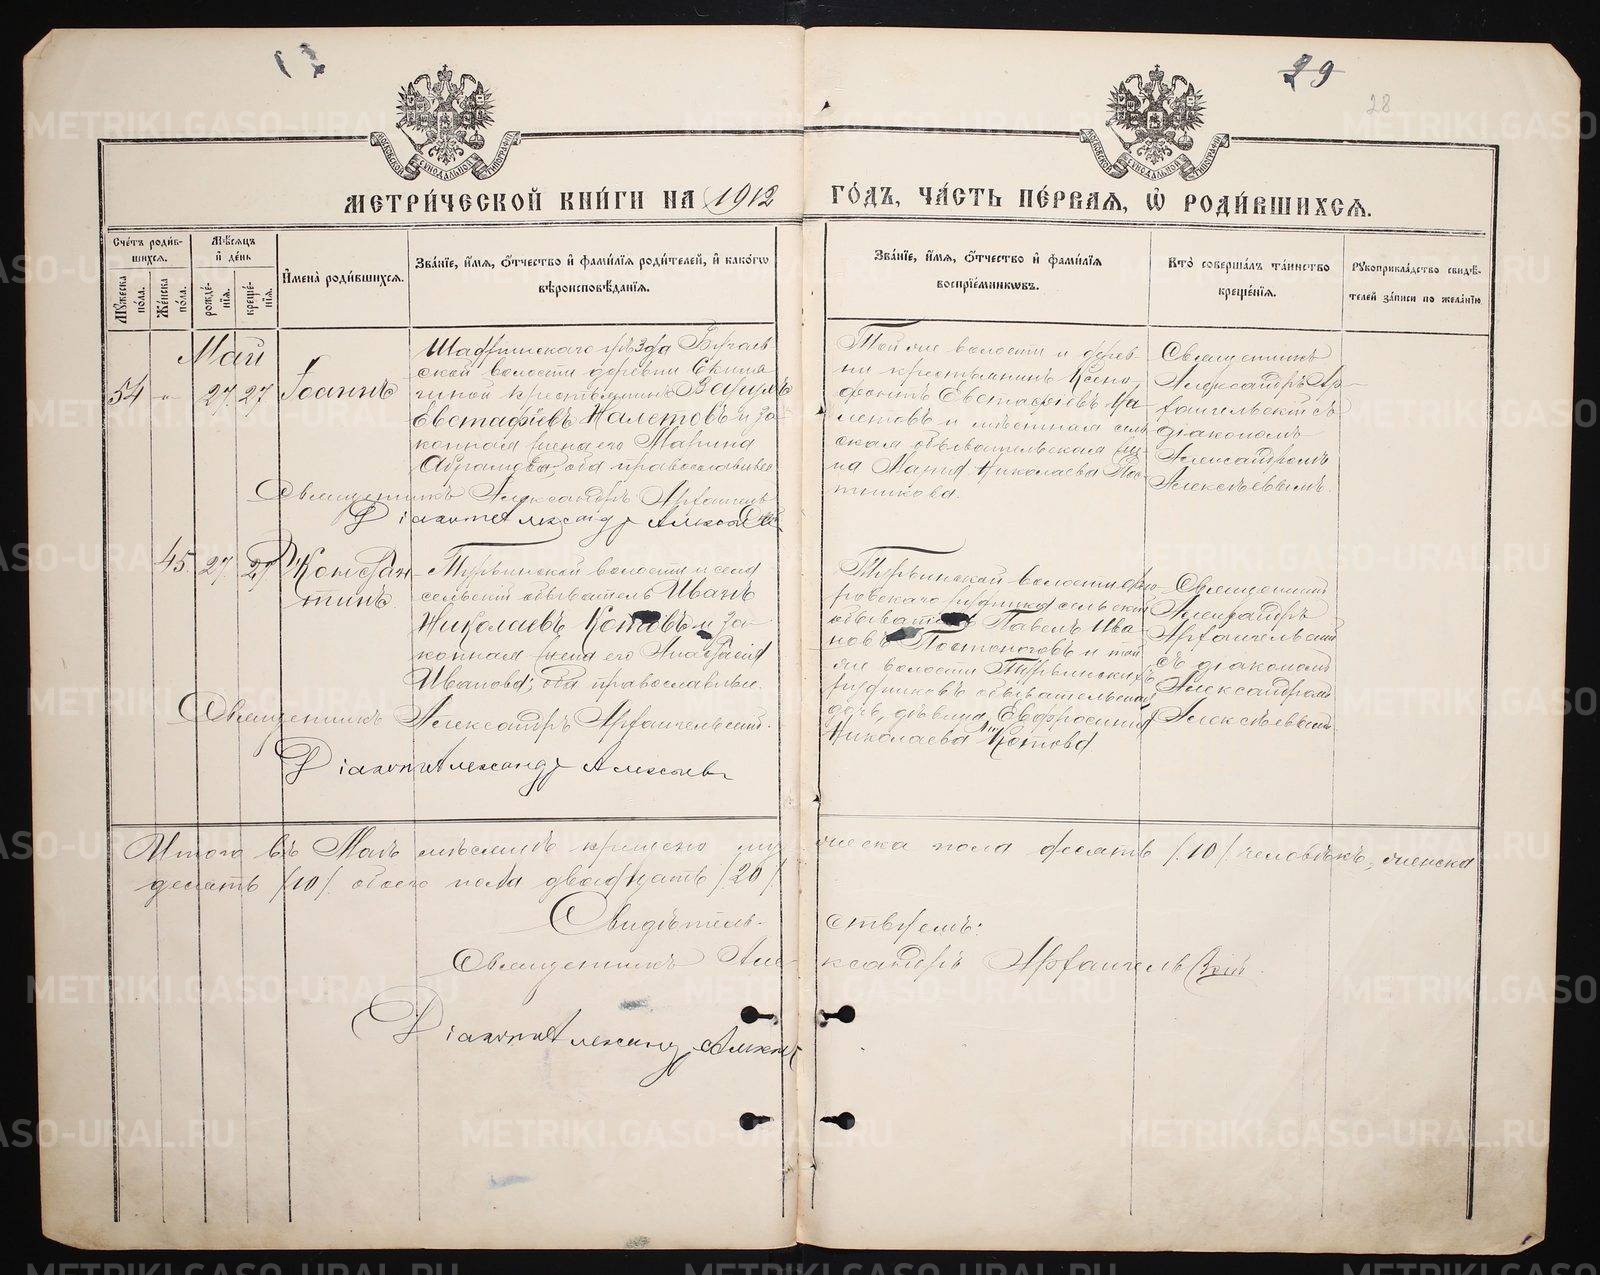 29
28
МЕТРИ́ЧЕСКОЙ КНИ́ГИ НА 1912 ГО́ДЪ, ЧА́СТЬ ПЕ́РВАЯ, Ѡ РОДИ́ВШИХСЯ.
Сче́тъ роди́вшихся.
Мꙋ́жеска по́ла.
Же́нска по́ла.
Мѣ́сяцъ и де́нь
рожде́нїя.
креще́нїя.
Имена̀ роди́вшихся.
Зва́нїе, и́мя, ѻ́тчество и фами́лїя роди́телей, и како́гѡ
вѣроисповѣ́данїя.
Зва́нїе, и́мя, ѻ́тчество и фами́лїя
воспрїе́мникѡвъ.
Кто̀ соверша́лъ та́инство
креще́нїя.
Рꙋкоприкла́дство свидѣ́-
телей за́писи по жела́нїю
Май
54 " 27. 27 Іоаннъ
Шадринскаго уѣзда
ской волости деревни
крестьянинъ
Евстафіевъ Налетовъ и за-
конная жена его Марина
Абрамова, оба православные
Священникъ Александръ Архангель
Діаконъ Александръ Алексѣев
Той же волости и дерев-
ни крестьянинъ Ксено-
фонтъ Евстафіевъ На-
летовъ и мѣстная сель-
ская обывательская же-
на Марія Николаева Пос-
тникова.
Священникъ
Александръ Ар-
хангельскій съ
діакономъ
Александромъ
Алексѣевымъ.
45. 27. 27 Констан-
тинъ
Турьинской волости и села
сельскій обыватель Иванъ
Николаевъ Котовъ и за-
конная жена его Анастасія
Иванова, оба православные.
Священникъ Александръ Архангельскій.
Діаконъ Александр Алексѣевъ
Турьинской волости Фро-
ловскаго рудника сельскій
обыватель Павелъ Ива-
новъ и той
же волости Турьинскихъ
рудниковъ обывательская
дочь, дѣвица Евфросинія
Николаева Котова
Священникъ
Александръ
Архангельскій
съ діакономъ
Александромъ
Алексѣевымъ.
Итого въ Маѣ мѣсяцѣ крещено мужеска пола десять /10/ человѣкъ, женска
десять /10/. обоего пола двадцать /20/.
Свидѣтельствуемъ:
Священникъ Александръ Архангельскій
Діаконъ Александр Алексѣ
METRIKI.GASO-URAL.RU